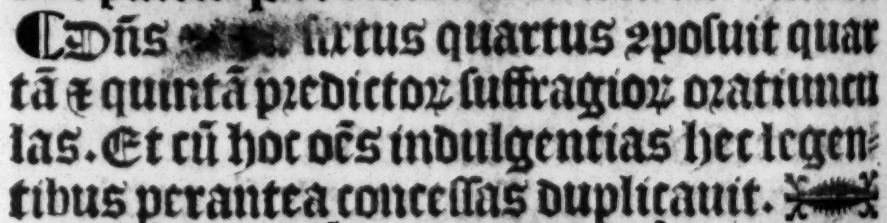 ¶ Dn̄s sixtus quartus ꝯposuit quar
tā ⁊ quintā predictoꝝ suffragioꝝ oratiuncu
las. Et cū hoc oēs indulgentias hec legen⸗
tibus perantea concessas duplicauit.